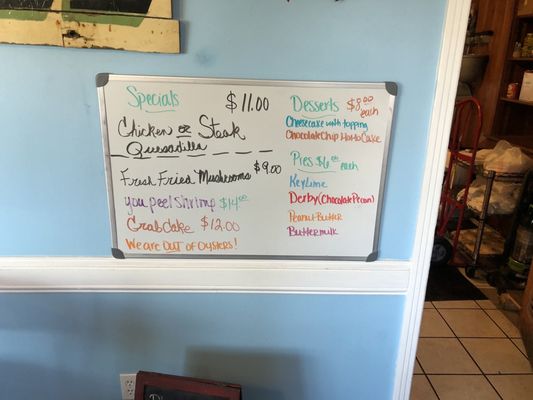 Specials
$11.00
Chicken or Steak
Quesadilla
Fresh Fried Mushrooms $9.00
you peel shrimp $14.00
Crab Cake $12.00
We are OUT OF OYSTERS!
Desserts $8.00 each
Cheesecake with topping
Chocolate Chip HotTo Cake
Pies $6.00 each
Key Lime
Derby (Chocolate Pecan)
Peanut Butter
Buttermilk